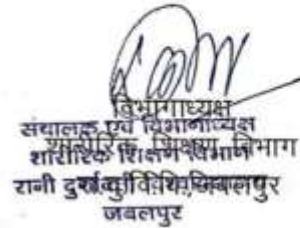 विभागाध्यक्ष
संचालक एवं विभागाध्यक्ष
शारीरिक शिक्षण विभाग
शारीरिक शिक्षण विभाग
रानी दुर्गावती वि.वि., जबलपुर
जबलपुर